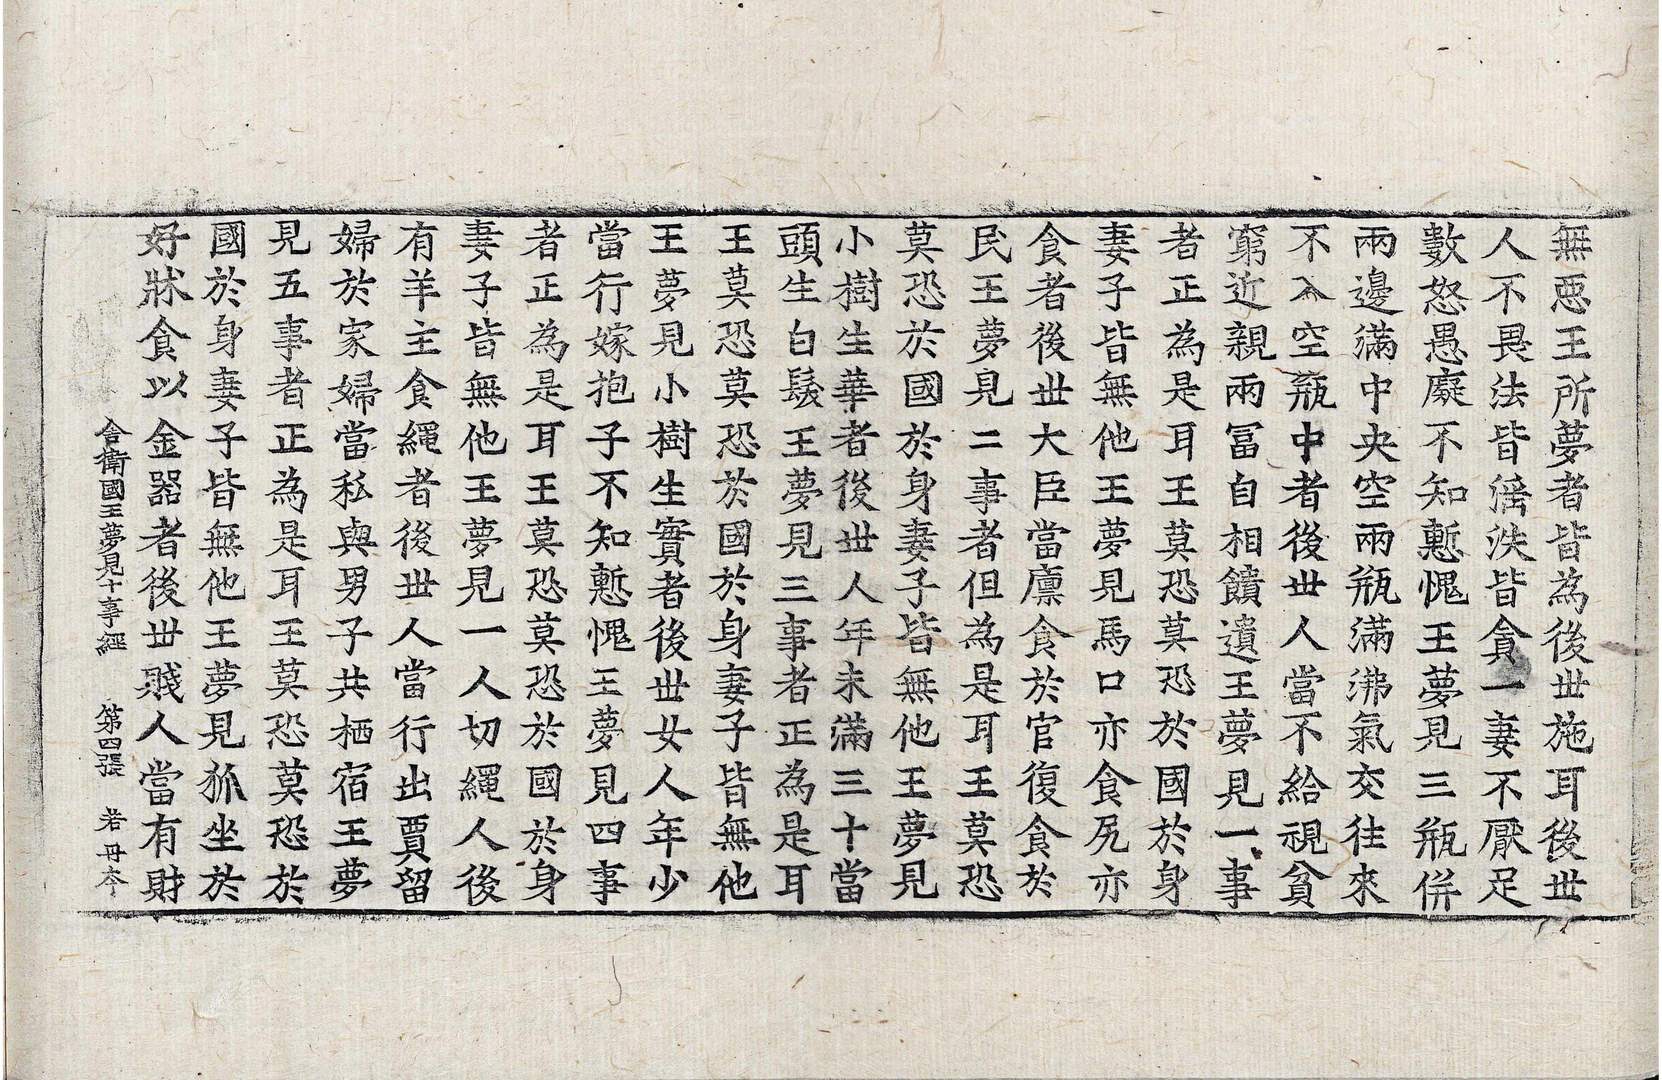 無惡王所夢者皆為後世施耳後世
人不畏法皆滛泆皆貪一妻不厭足
數怒愚癡不知慙愧王夢見三瓶併
兩邊滿中央空兩瓶滿沸氣交往來
不入空瓶中者後世人當不給視貧
窮近親兩冨自相饋遺王夢見一事
者正為是耳王莫恐莫恐於國於身
妻子皆無他王夢見馬口亦食尻亦
食者後世大臣當廩食於官復食於
民王夢見二事者但為是耳王莫恐
莫恐於國於身妻子皆無他王夢見
小樹生華者後世人年未滿三十當
頭生白髮王夢見三事者正為是耳
王莫恐莫恐於國於身妻子皆無他
王夢見小樹生實者後世女人年少
當行嫁抱子不知慙愧王夢見四事
者正為是耳王莫恐莫恐於國於身
妻子皆無他王夢見一人切繩人後
有羊主食繩者後世人當行出賈留
婦於家婦當私與男子共栖宿王夢
見五事者正為是耳王莫恐莫恐於
國於身妻子皆無他王夢見狐坐於
好牀食以金器者後世賤人當有財
舍衛國王夢見十事經 第四張 若 冊岑